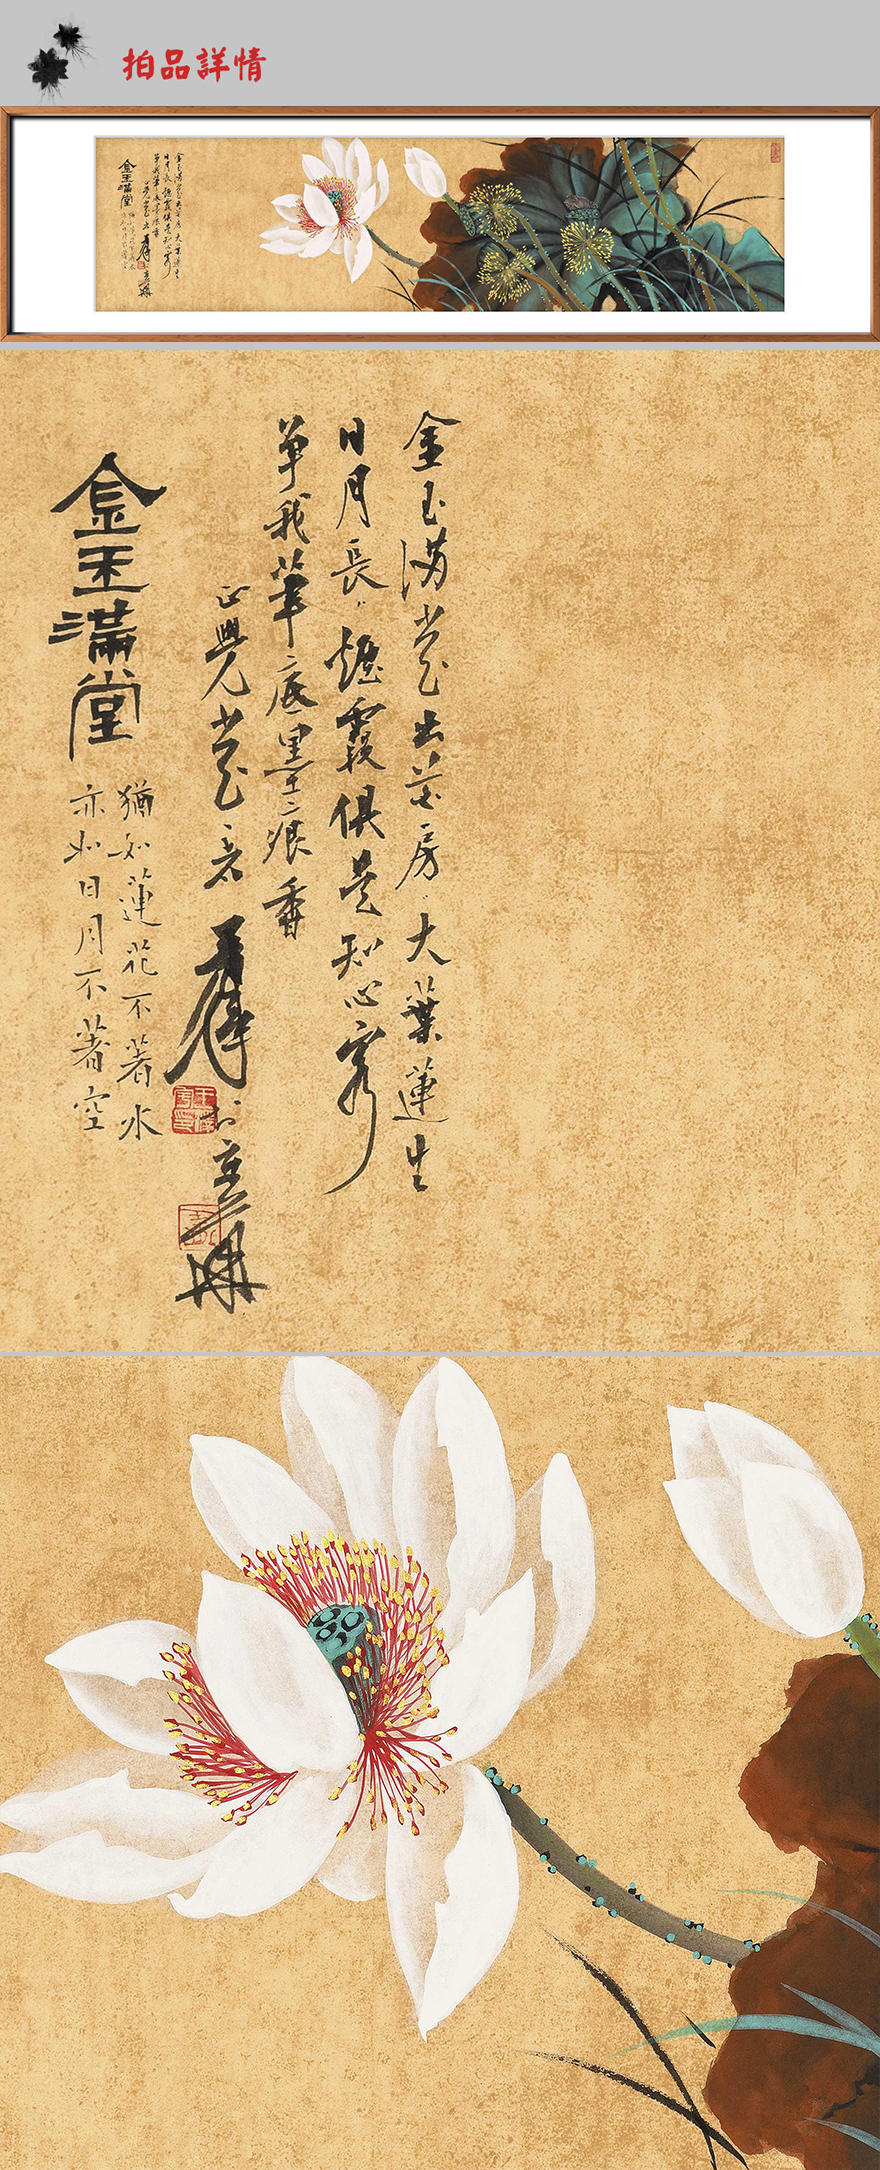 拍品詳情
金玉滿堂出花房大葉蓮生
日月長煙霞俱是知心客
爭我筆底墨痕香
正覺堂主
金玉滿堂
猶如蓮花不著水
亦如日月不著空